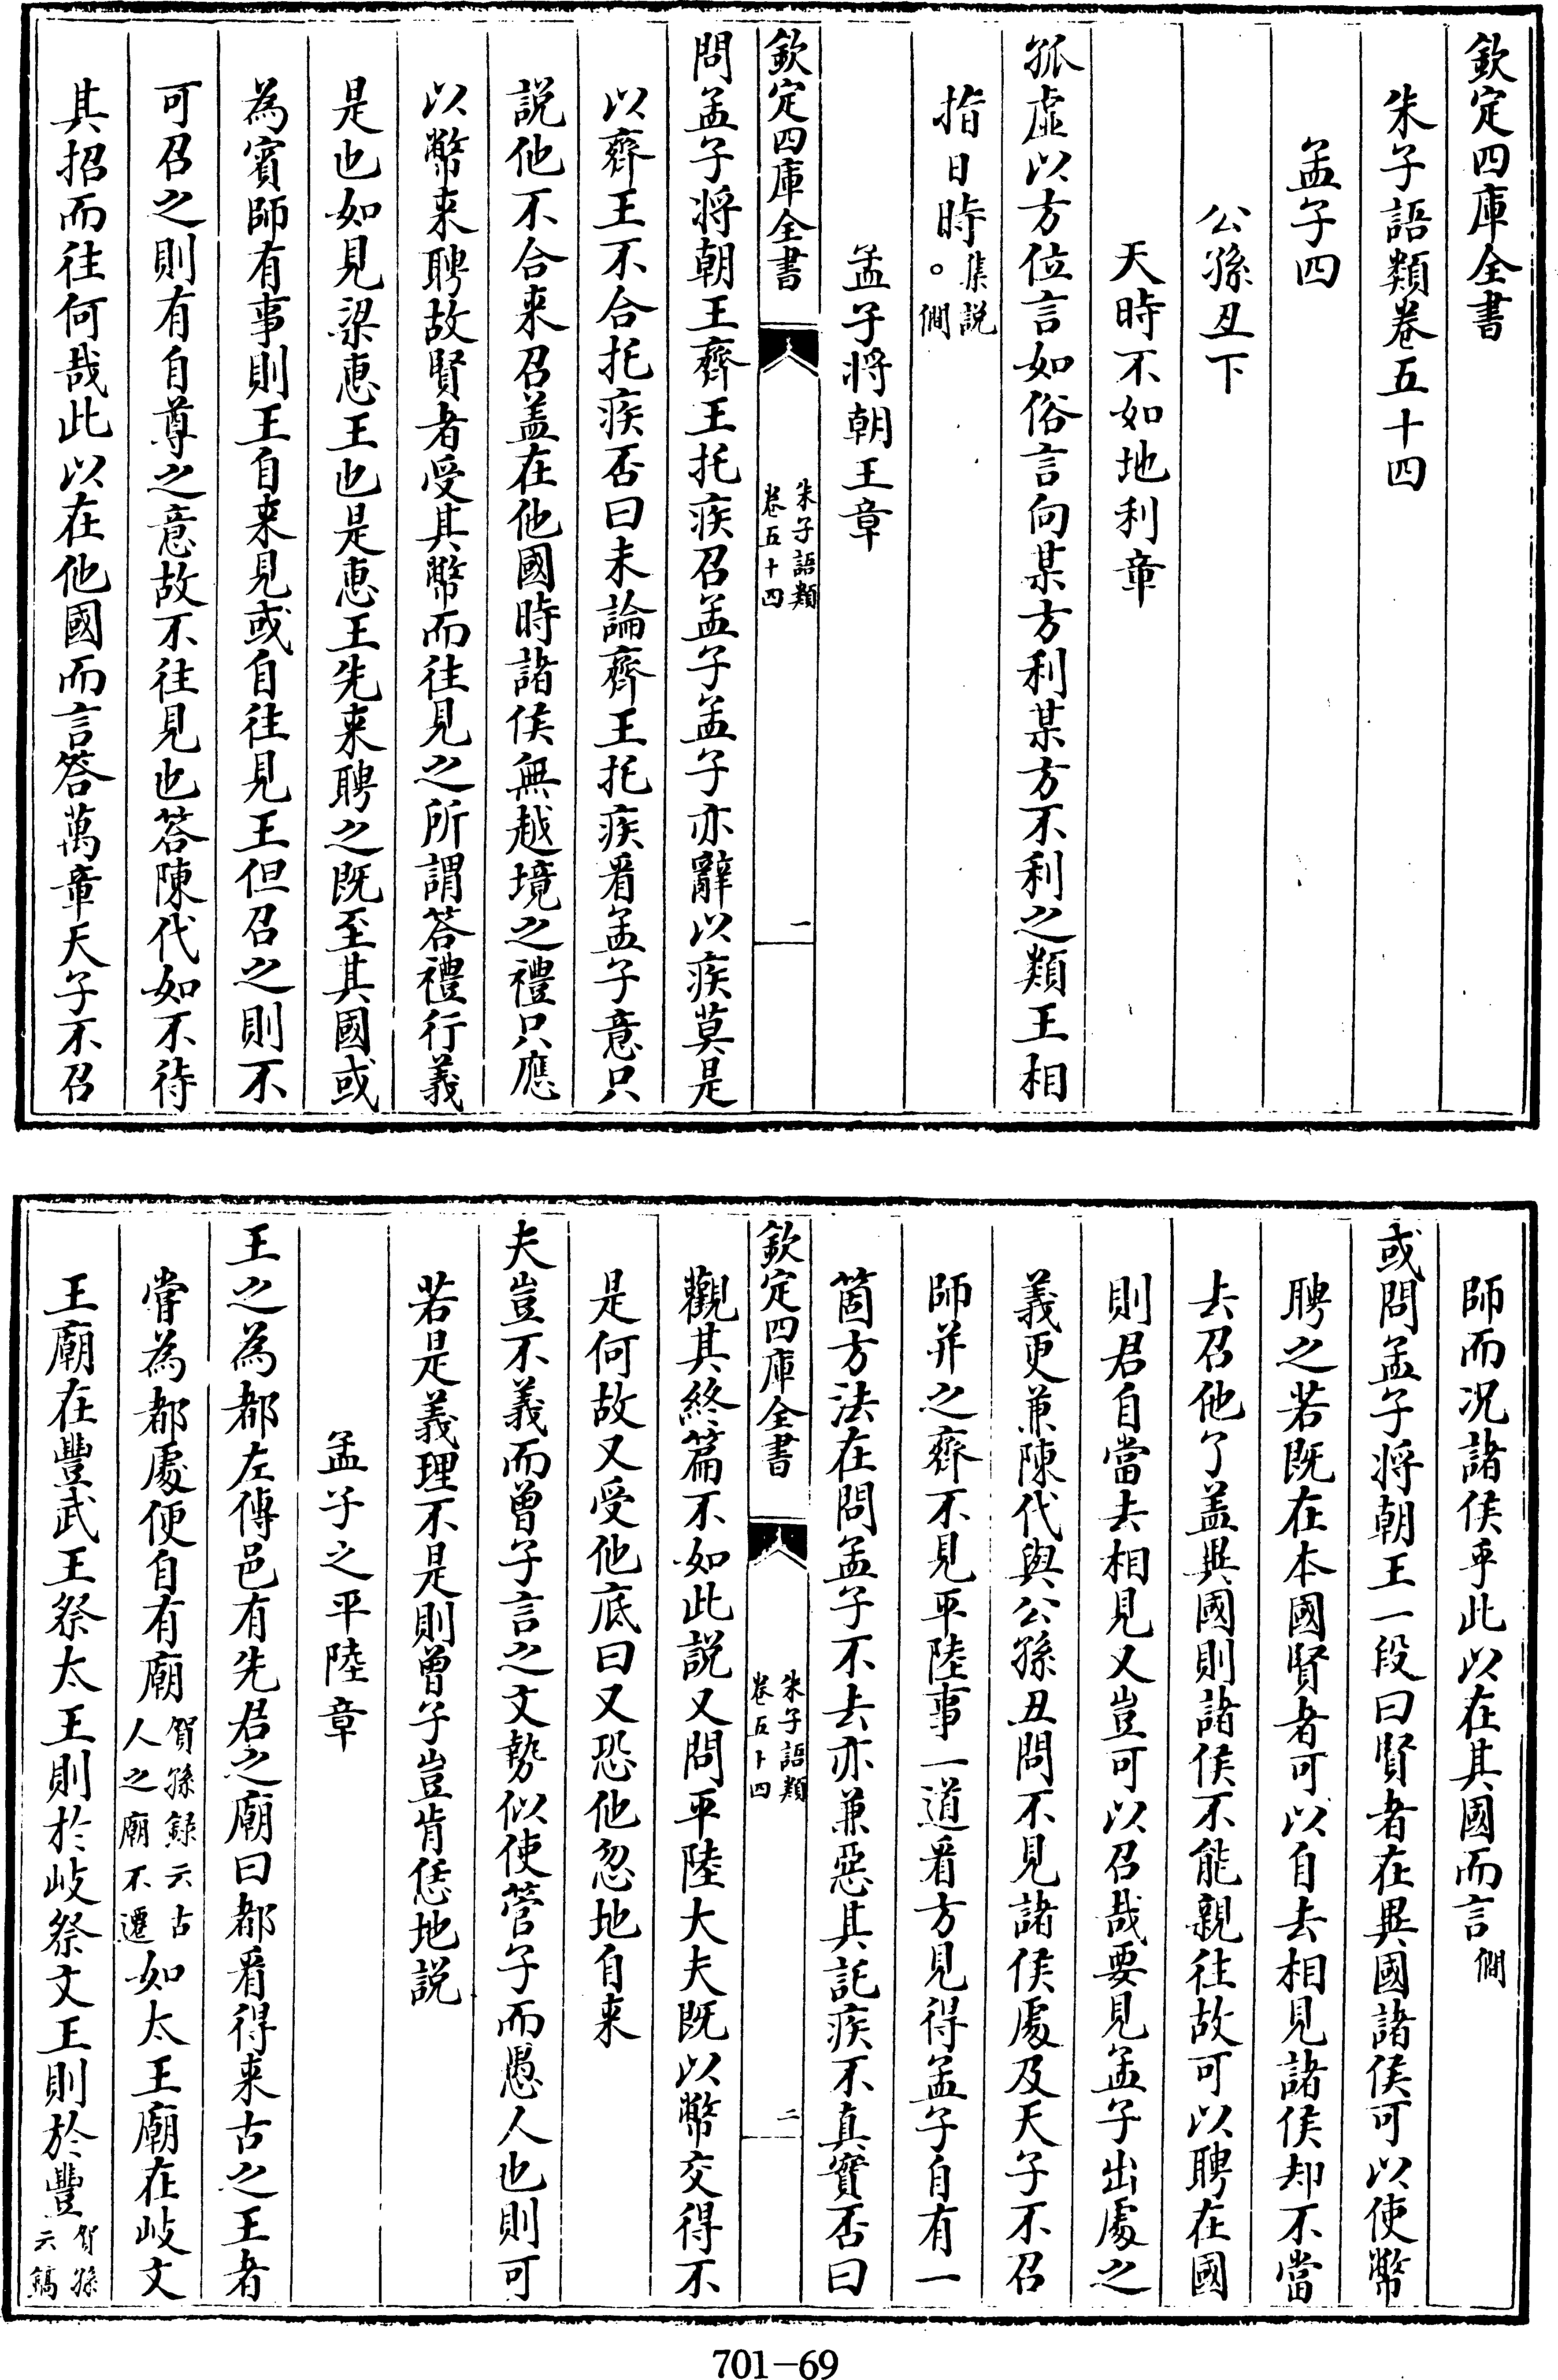 欽定四庫全書
朱子語類卷五十四
孟子四
公孫丑下
天時不如地利章
孤虛以方位言如俗言向某方利某方不利之類王相
指日時集説。僩
孟子将朝王章
欽定四庫全書
朱子語類
卷五十四
一
問孟子将朝王齊王托疾召孟子孟子亦辭以疾莫是
以齊王不合托疾否曰未論齊王托疾看孟子意只
說他不合来召盖在他國時諸侯無越境之禮只應
以幣来聘故賢者受其幣而往見之所謂答禮行義
是也如見梁惠王也是惠王先来聘之既至其國或
為賓師有事則王自来見或自往見王但召之則不
可召之則有自尊之意故不往見也答陳代如不待
其招而往何哉此以在他國而言答萬章天子不召
師而况諸侯乎此以在其國而言僩
或問孟子将朝王一段曰賢者在異國諸侯可以使幣
聘之若既在本國賢者可以自去相見諸侯却不當
去召他了盖異國則諸侯不能親往故可以聘在國
則君自當去相見又豈可以召哉要見孟子出處之
義更兼陳代與公孫丑問不見諸侯處及天子不召
師并之齊不見平陸事一道看方見得孟子自有一
箇方法在問孟子不去亦兼惡其託疾不真實否曰
欽定四庫全書
朱子語類
卷五十四
二
觀其終篇不如此說又問平陸大夫既以幣交得不
是何故又受他底曰又恐他忽地自来
夫豈不義而曽子言之文勢似使管子而愚人也則可
若是義理不是則曽子豈肯恁地説
孟子之平陸章
王之為都左傳邑有先君之廟曰都看得来古之王者
嘗為都處便自有廟賀孫録云古人之廟不遷如太王廟在岐文
王廟在豐武王祭太王則於岐祭文王則於豐賀孫云鎬
701-69